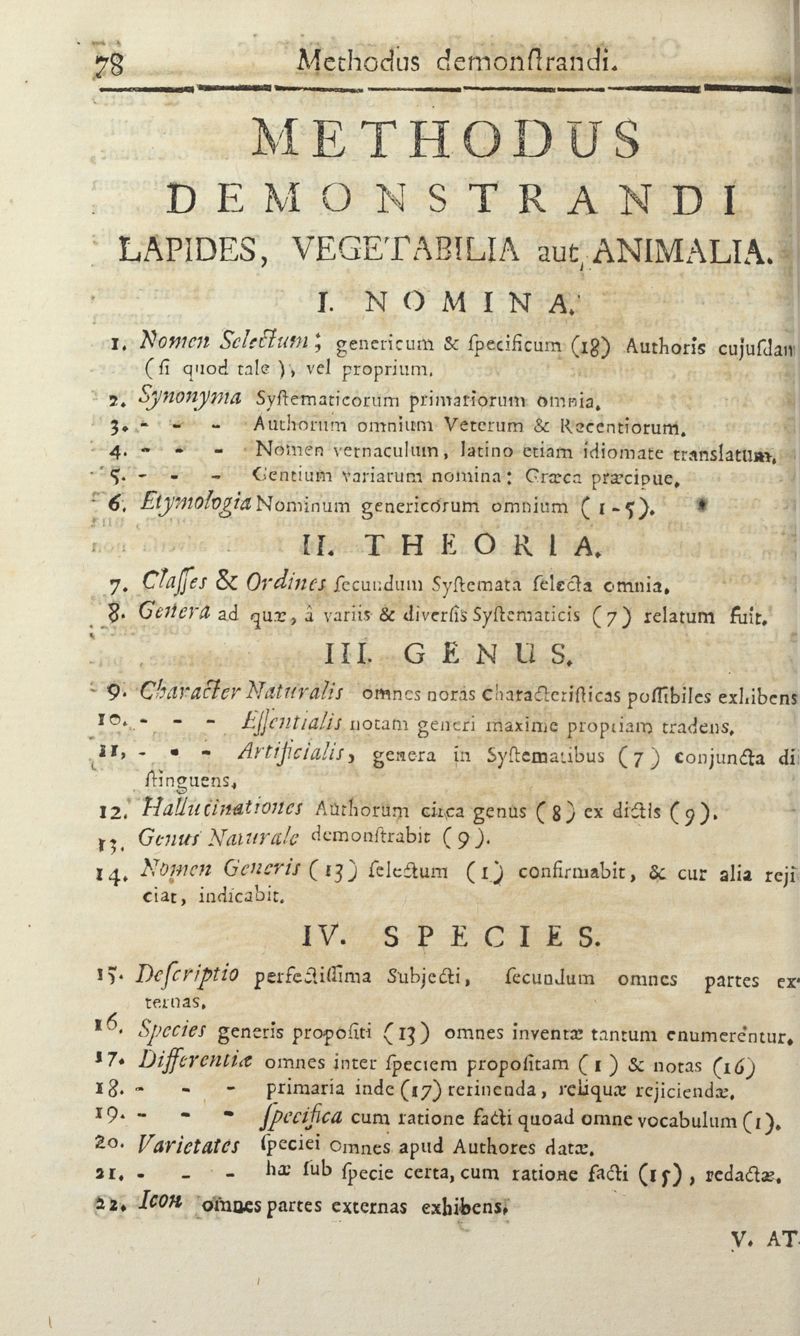 78 Methodus demonſtrandi.
METHODUS
DEMONSTRANDI
LAPIDES, VEGETABILIA aut ANIMALIA.
I. NOMINA.
1. Nomen Selectum; genericum & ſpecificum (18) Authoris cujuſdam
(ſi quod tale), vel proprium.
2. Synonyma Syſtematicorum primariorum omnia.
3. - - - Authorum omnium Veterum & Recentiorum.
4. - - - Nomen vernaculum, latino etiam idiomate translatum.
5. - - - Gentium variarum nomina: Græca præcipue.
6. Etymologia Nominum genericorum omnium (1-5). *
II. THEORIA.
7. Claſſes & Ordines ſecundum Syſtemata ſelecta omnia.
8. Genera ad quæ, à variis & diverſis Syſtematicis (7) relatum fuit.
III. GENUS.
9. Character Naturalis omnes notas characteriſticas poſſibiles exhibens
10. - - - Eſſentialis notam generi maxime propriam tradens.
11. - - - Artificialis, genera in Syſtematibus (7) conjuncta di
ſtinguens.
12. Hallucinationes Authorum circa genus (8) ex dictis (9).
13. Genus Naturale demonſtrabit (9).
14. Nomen Generis (13) ſelectum (1) confirmabit, & cur alia reji
ciat, indicabit.
IV. SPECIES.
15. Deſcriptio perfectiſſima Subjecti, ſecundum omnes partes ex-
ternas.
16. Species generis propoſiti (13) omnes inventæ tantum enumerentur.
17. Differentiæ omnes inter ſpeciem propoſitam (1) & notas (16)
18. - - - primaria inde (17) retinenda, reliquæ rejiciendæ.
19. - - - ſpecifica cum ratione facti quoad omne vocabulum (1).
20. Varietates ſpeciei omnes apud Authores datæ.
21. - - - hæ ſub ſpecie certa, cum ratione facti (15), redactæ.
22. Icon omnes partes externas exhibens.
V. AT-